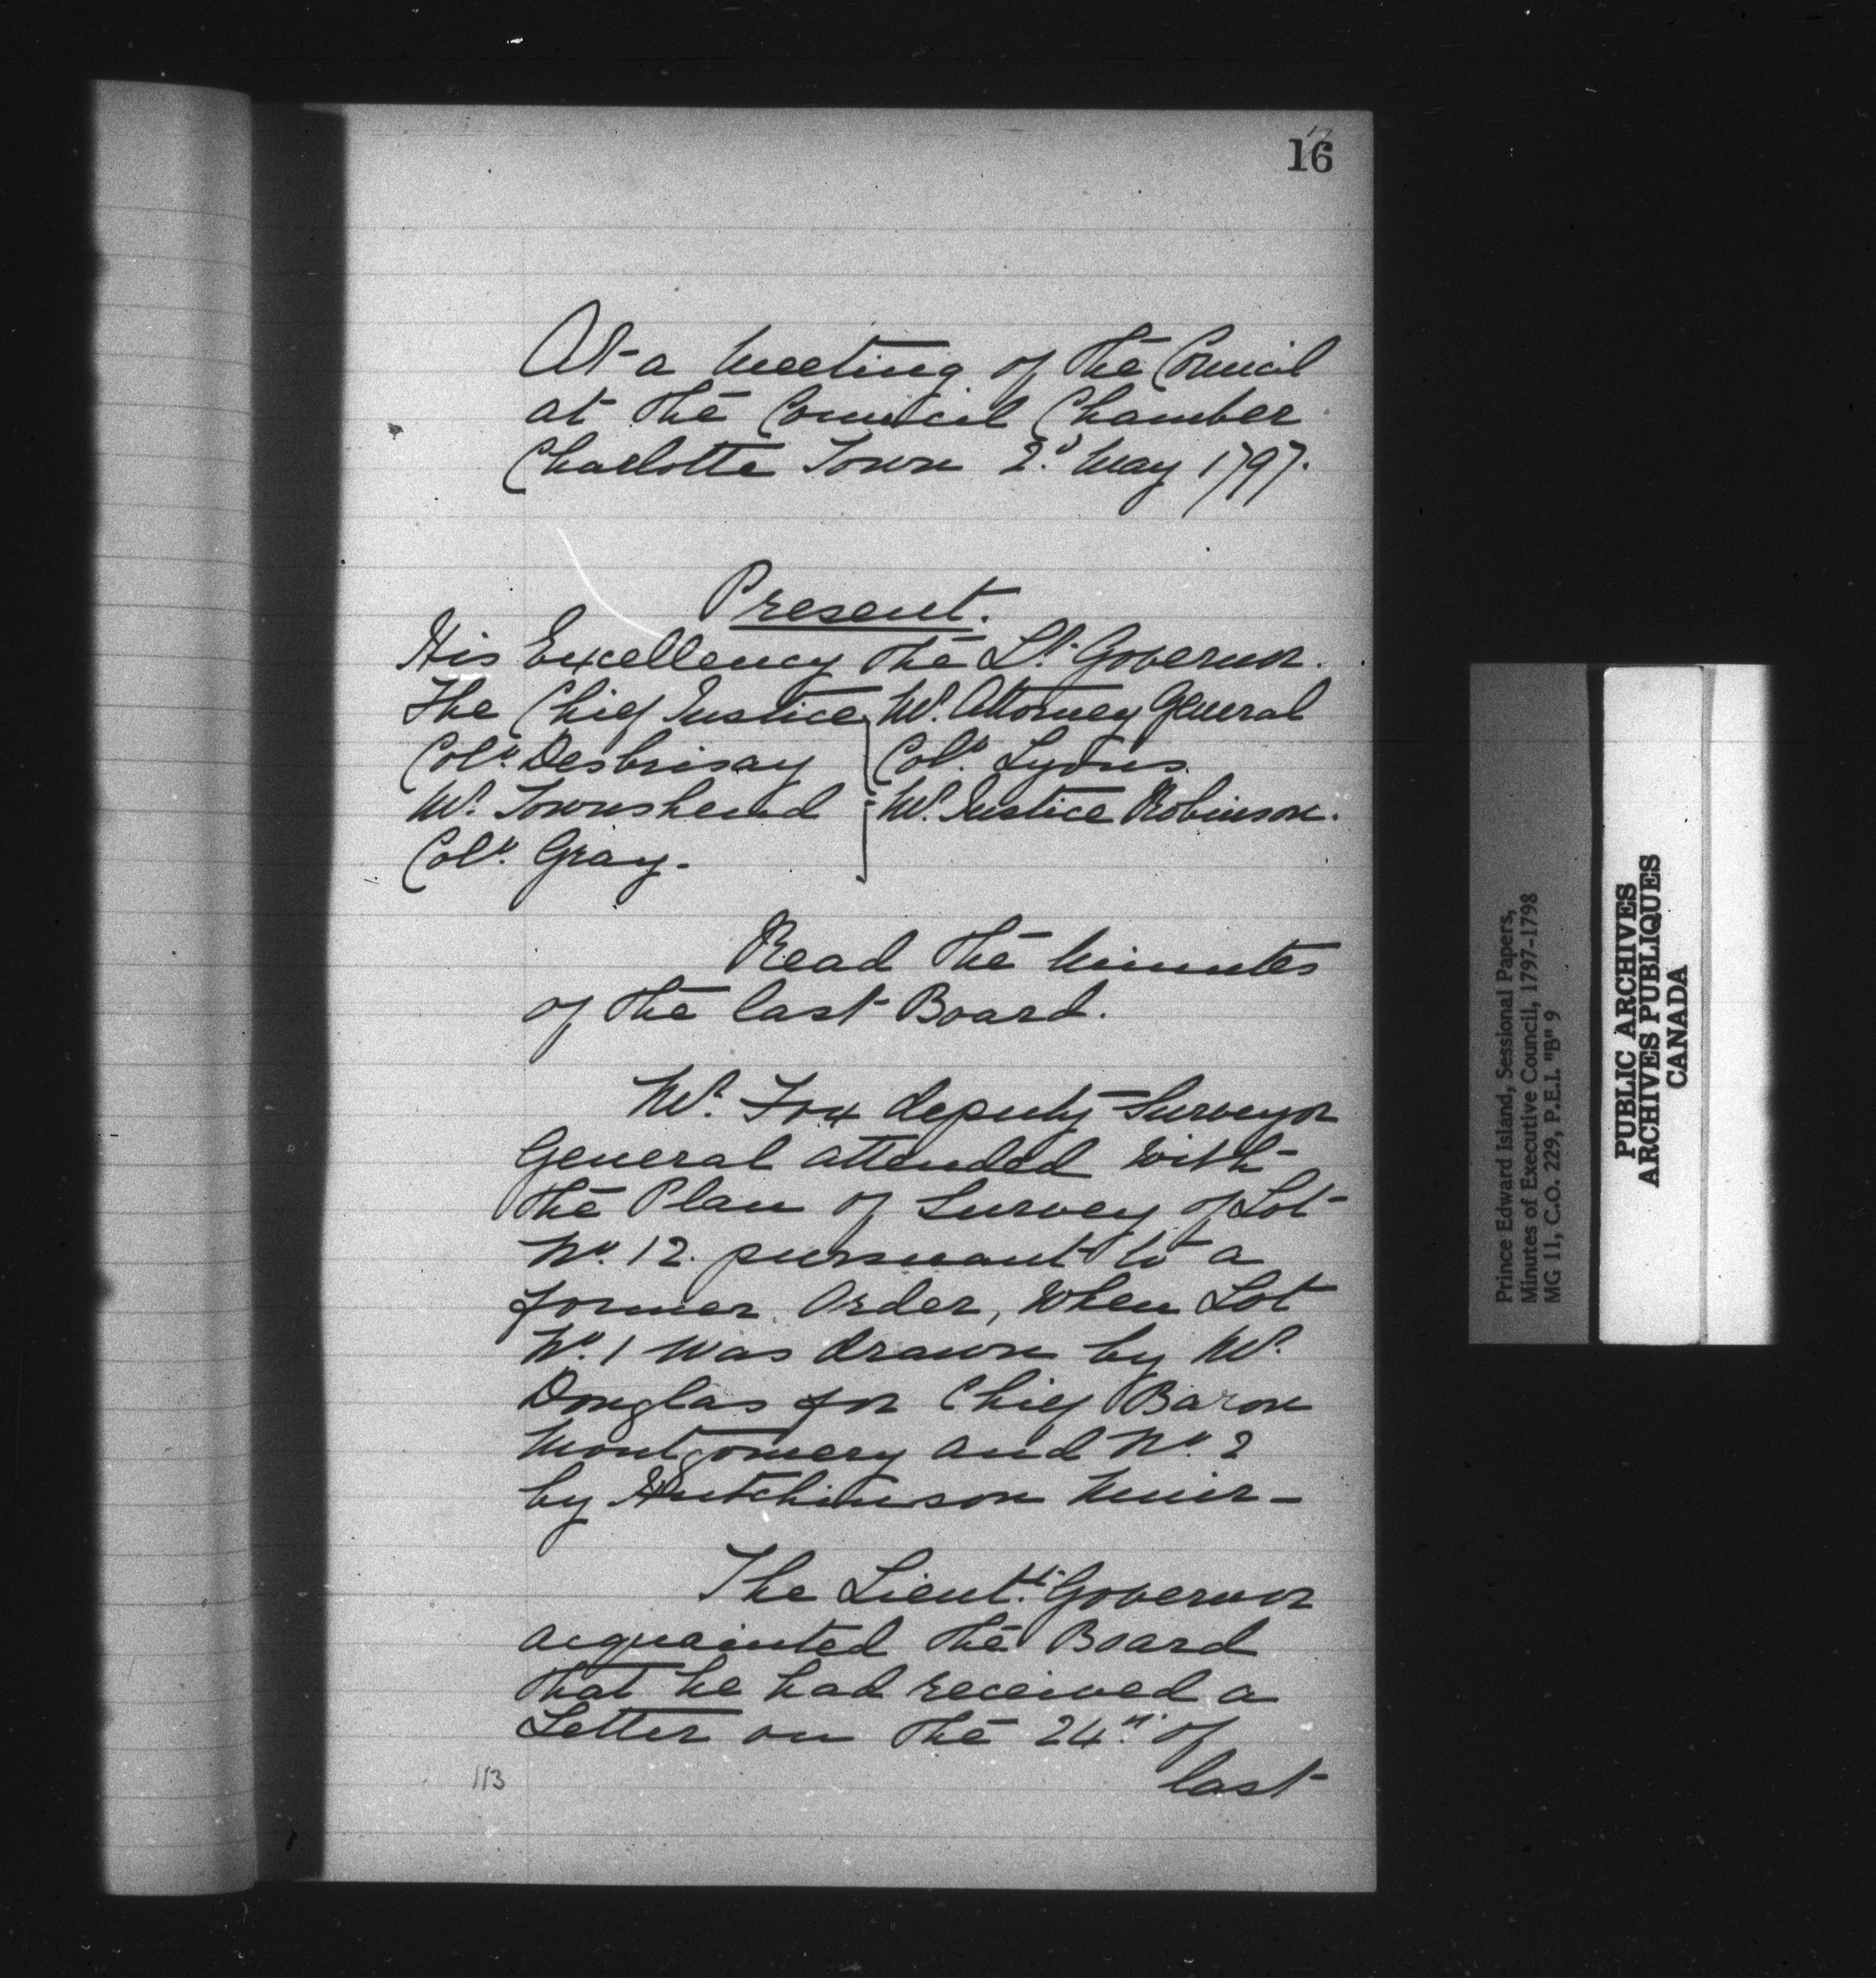 16
At a Meeting of the Council
at the Council Chamber
Charlotte Town 2d May 1797.
Present.
His Excellency the Lt. Governor.
The Chief Justice Mr. Attorney General
Coll. Desbrisay Coll. Lyons.
Mr. Townshend Mr. Justice Robinson.
Coll. Gray.
Read the Minutes
of the last Board.
Mr. Fox deputy Surveyor
General attended with
the Plan of Survey of Lot
No. 12. pursuant to a
former Order, when Lot
No. 1 was drawn by Mr.
Douglas for Chief Baron
Montgomery and No. 2
by Hutchinson Muir-
The Lieutt. Governor
acquainted the Board
that he had received a
Letter on the 24th. of
last
113
Prince Edward Island, Sessional Papers,
Minutes of Executive Council, 1797-1798
MG 11, C.O. 229, P.E.I. "B" 9
PUBLIC ARCHIVES
ARCHIVES PUBLIQUES
CANADA